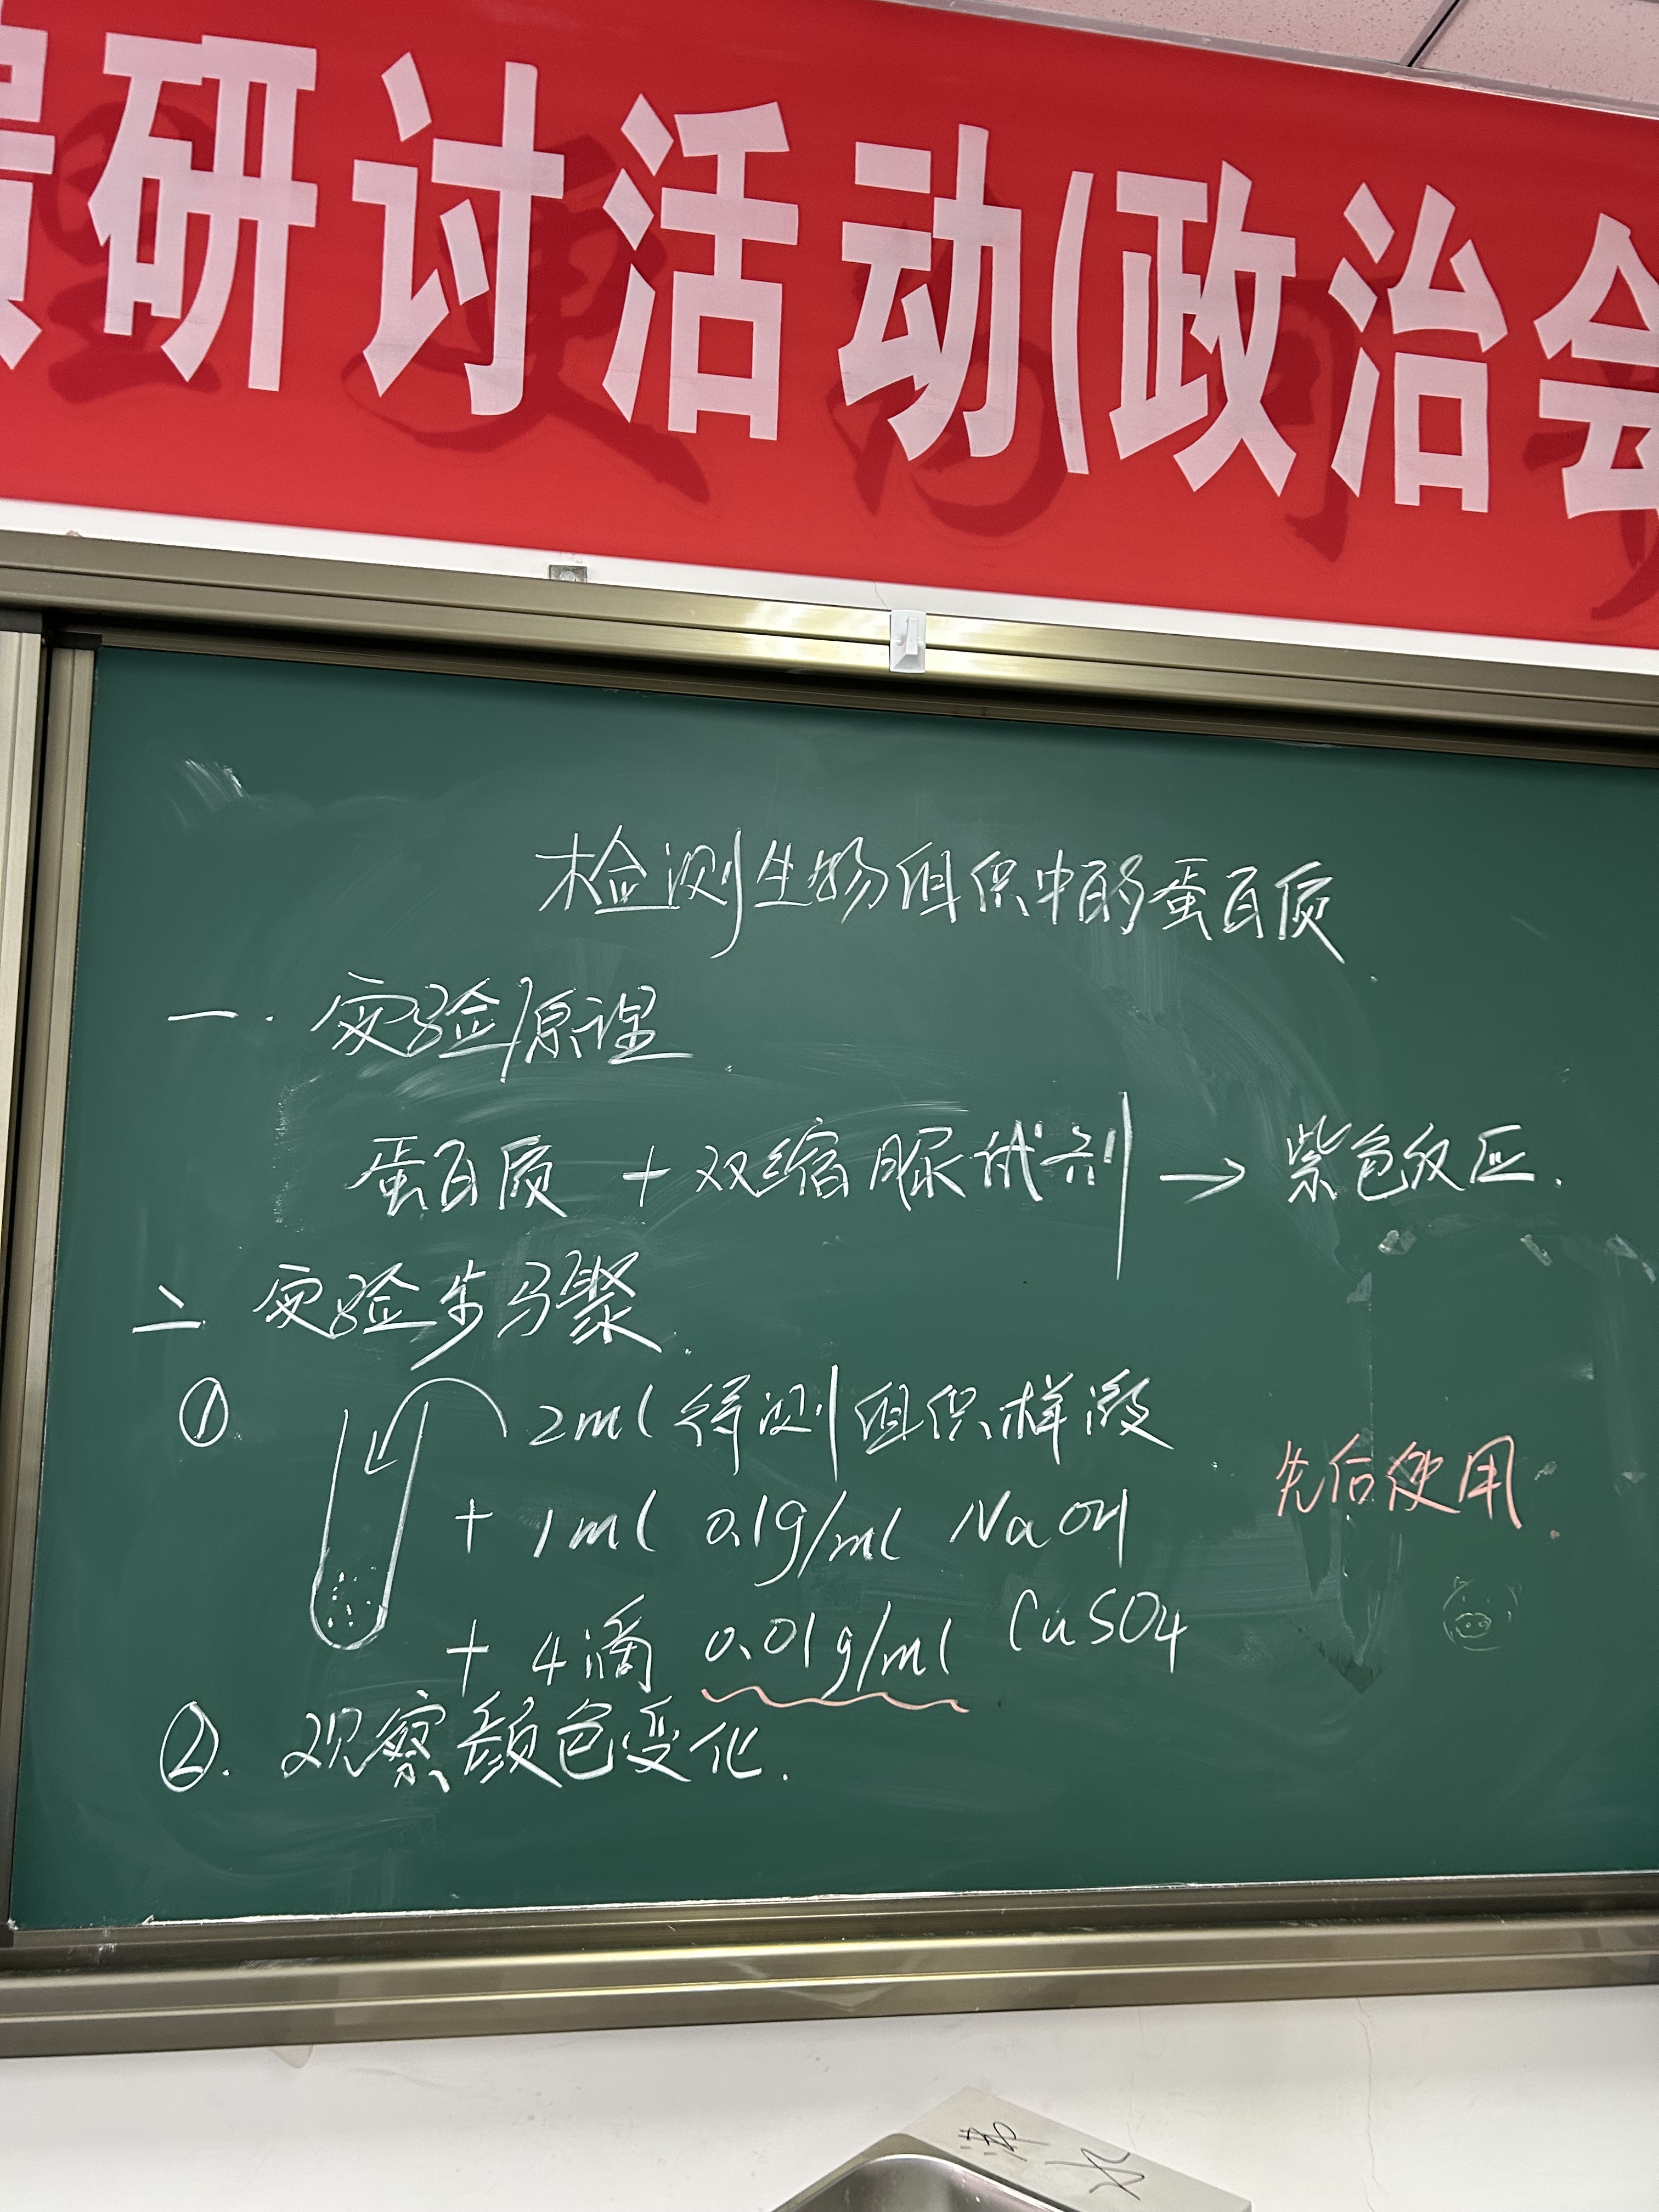 研讨活动(政治会
检测生物组织中的蛋白质
一. 实验原理
蛋白质 + 双缩脲试剂 → 紫色反应.
二 实验步骤.
① 2ml 待测组织样液
+ 1ml 0.1g/ml NaOH 先后使用.
+ 4滴 0.01g/ml CuSO4
②. 观察颜色变化.
沸水